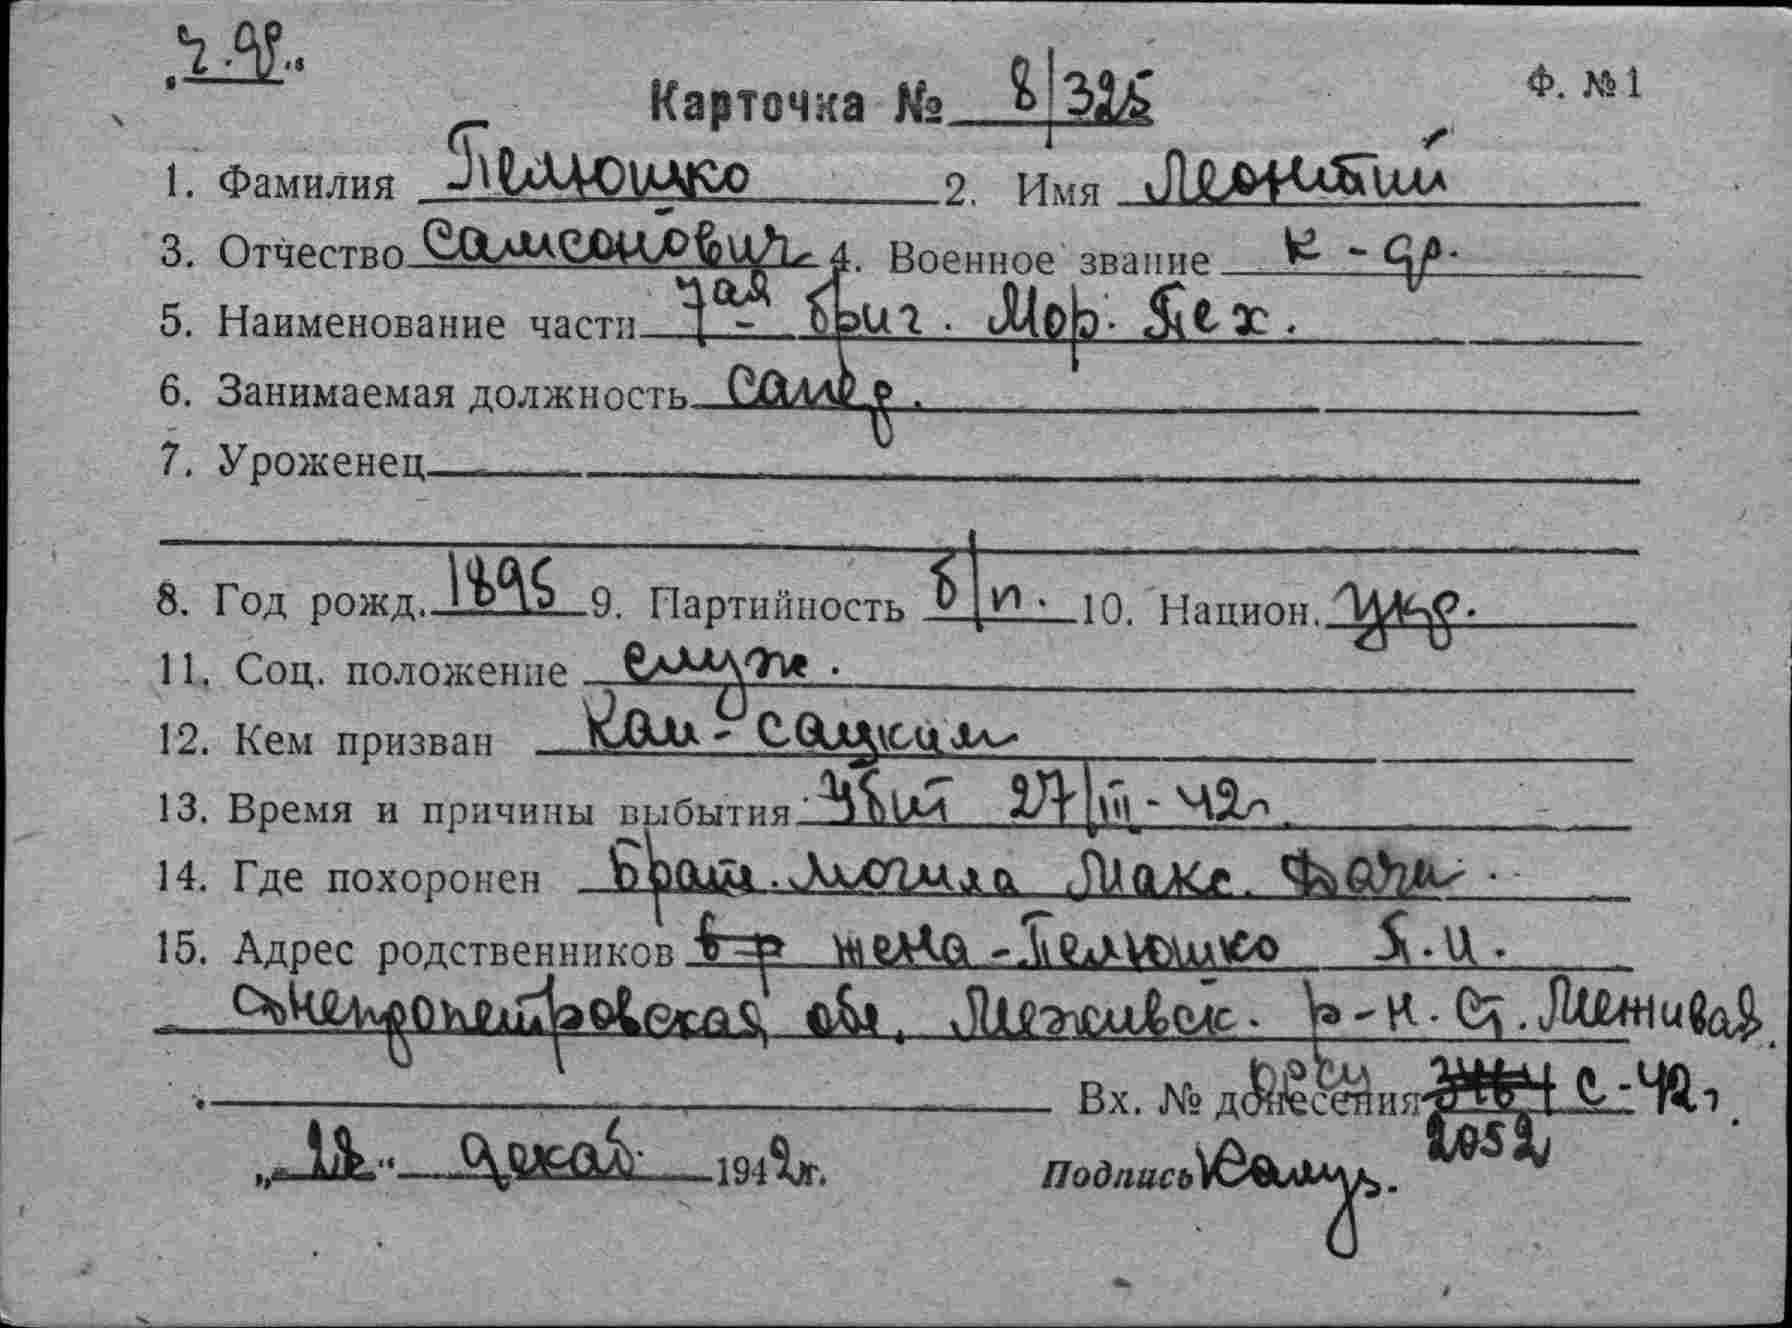 Карточка № 8/325
Ф. №1
1. Фамилия Пелюшко 2. Имя Леонтий
3. Отчество Самсонович 4. Военное звание к-др.
5. Наименование части 7ая бриг. Мор. Пех.
6. Занимаемая должность
7. Уроженец
8. Год рожд. 1895 9. Партийность б/п. 10. Национ. Укр.
11. Соц. положение служ.
12. Кем призван
13. Время и причины выбытия Убит 27/III-42г.
14. Где похоронен Брат. могила
15. Адрес родственников жена - Пелюшко П.И.
Днепропетровская обл. Межевск. р-н. Ст. Межевая
Вх. № донесения с-42г.
2052
„12“ декаб. 1942г. Подпись